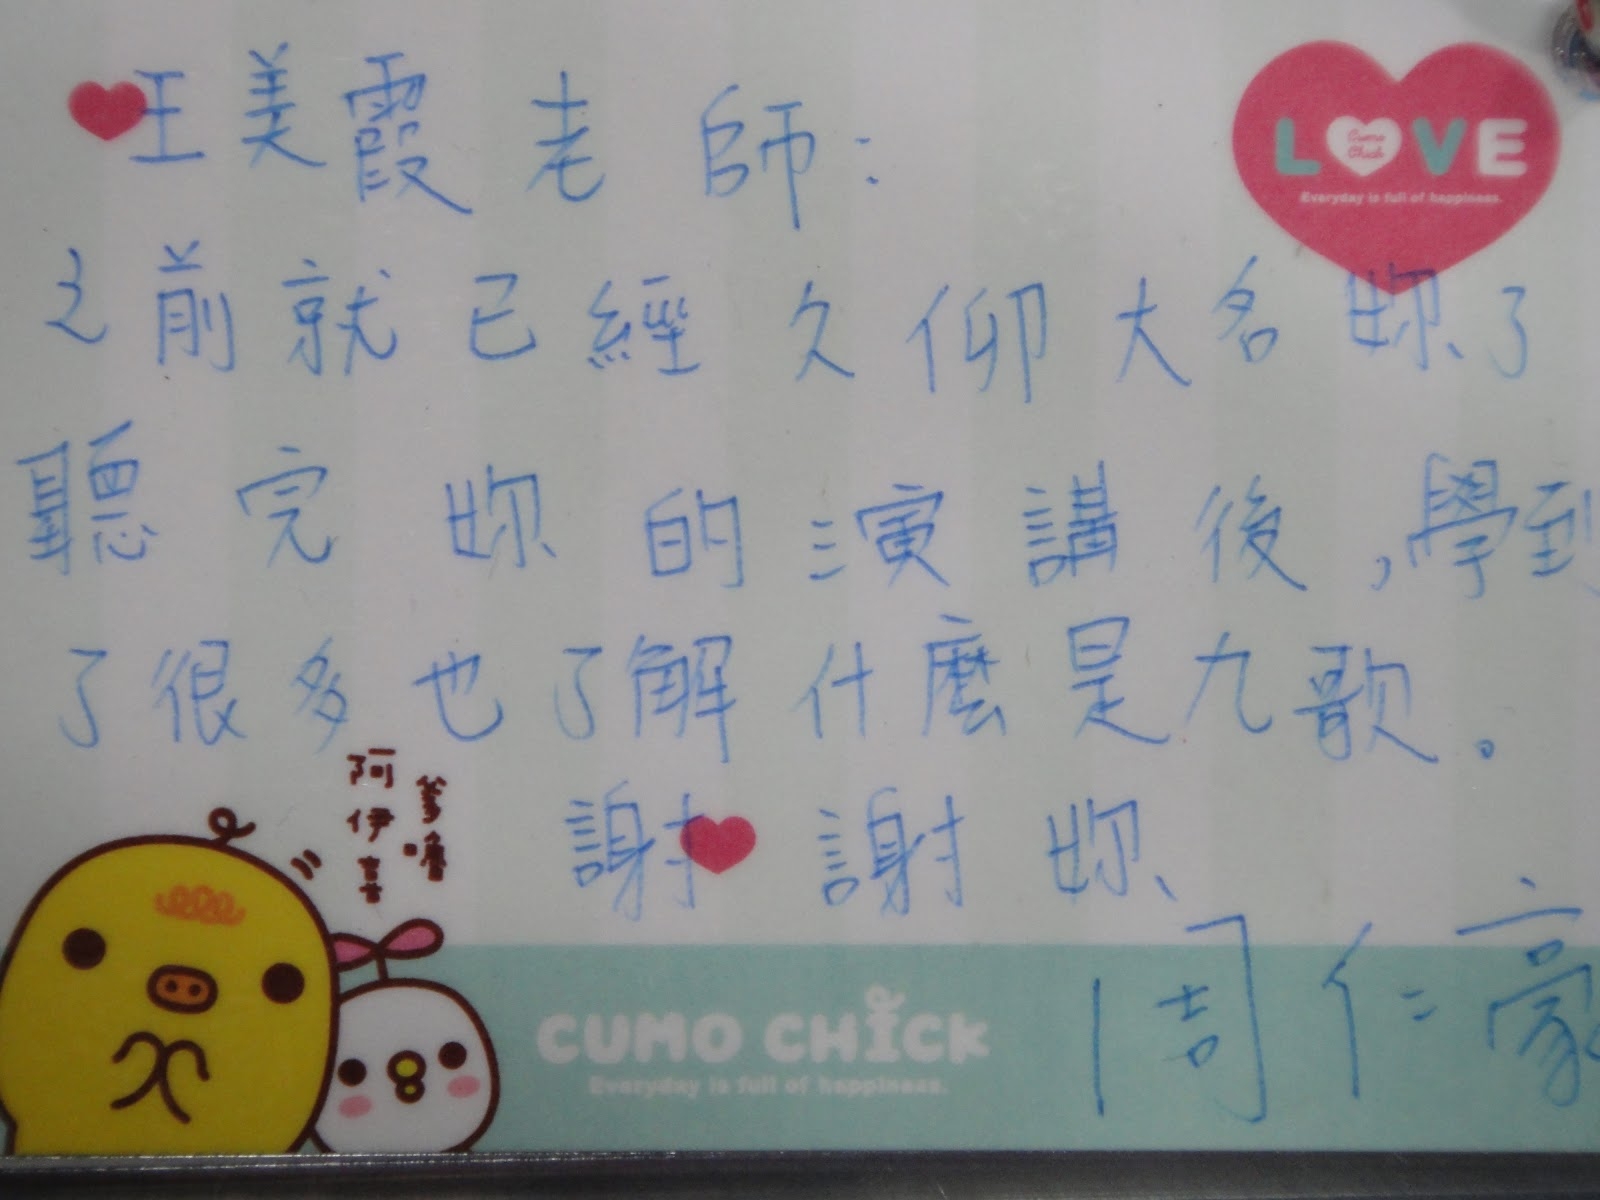 王美霞老師：
LOVE
Cumo Chick
Everyday is full of happiness.
之前就已經久仰大名妳了
聽完妳的演講後，學到
了很多也了解什麼是九歌。
謝謝妳
阿伊喜
爹嚕
周仁豪
CUMO CHICK
Everyday is full of happiness.